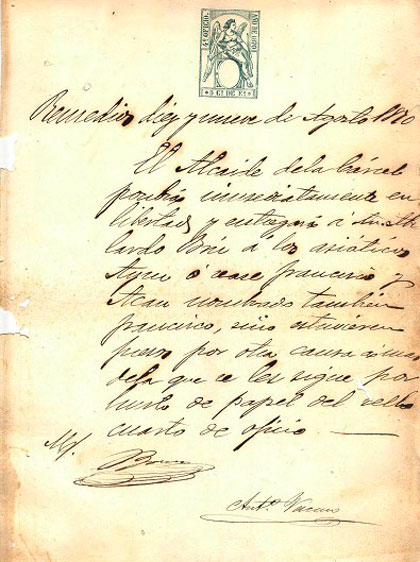 4º OFICIO.
AÑO DE 1870
5 Cs. DE Eº.
Remedios diez y nueve de Agosto 1870
El Alcaide de la Cárcel
pondrá inmediatamente en
libertad y entregará á
lardo á los asiáticos
ó sease Francisco y
Acau nombrado también
Francisco, sino estuvieren
presos por otra causa
de la que se les sigue por
hurto de papel del sello
cuarto de oficio.
Antº.